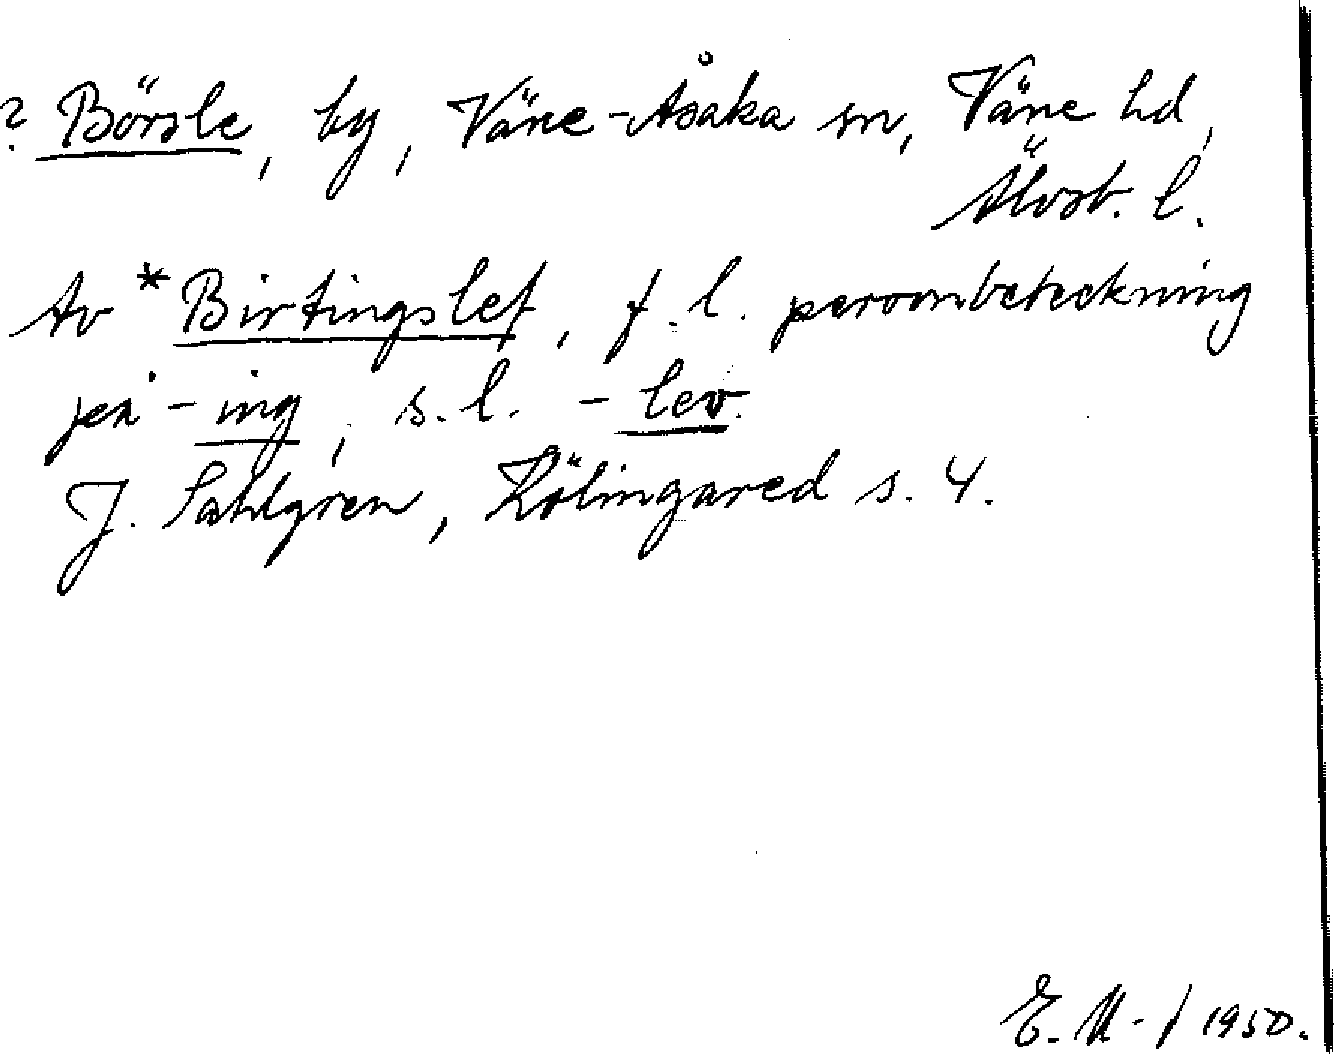 ? Börsle, by, Väne-Åsaka sn, Väne hd,
Älvsb. l.
Av *Birtingslef, f. l. personbeteckning
på -ing, s. l. -lev.
J. Sahlgren, Kölingared s. 4.
E. M-f 1950.